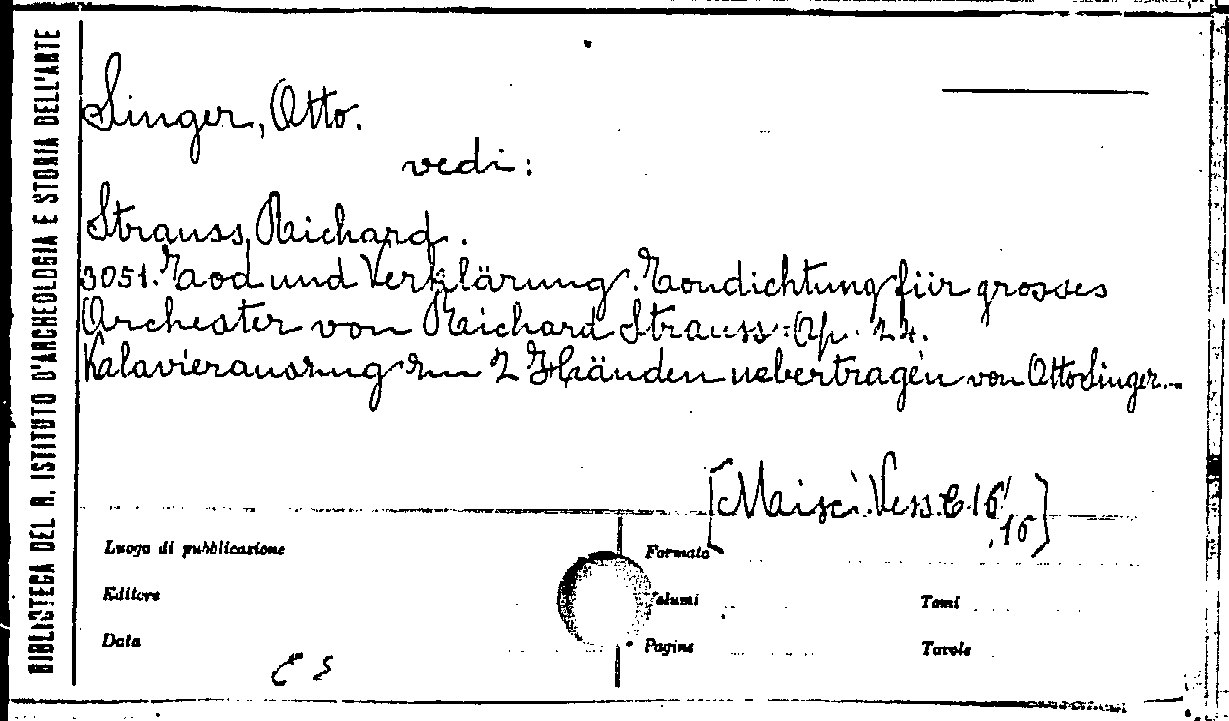 BIBLIOTECA DEL R. ISTITUTO D'ARCHEOLOGIA E STORIA DELL'ARTE
Singer, Otto.
vedi:
Strauss, Richard.
3051. Tod und Verklärung. Tondichtung für grosses
Orchester von Richard Strauss. Op. 24.
Kalavierauszug zu 2 Händen uebertragen von Otto Singer...
[Maisci. Vess. C. 16
, 16]
Luogo di pubblicazione
Formato
Editore
Volumi
Tomi
Data
Pagine
Tavole
C S